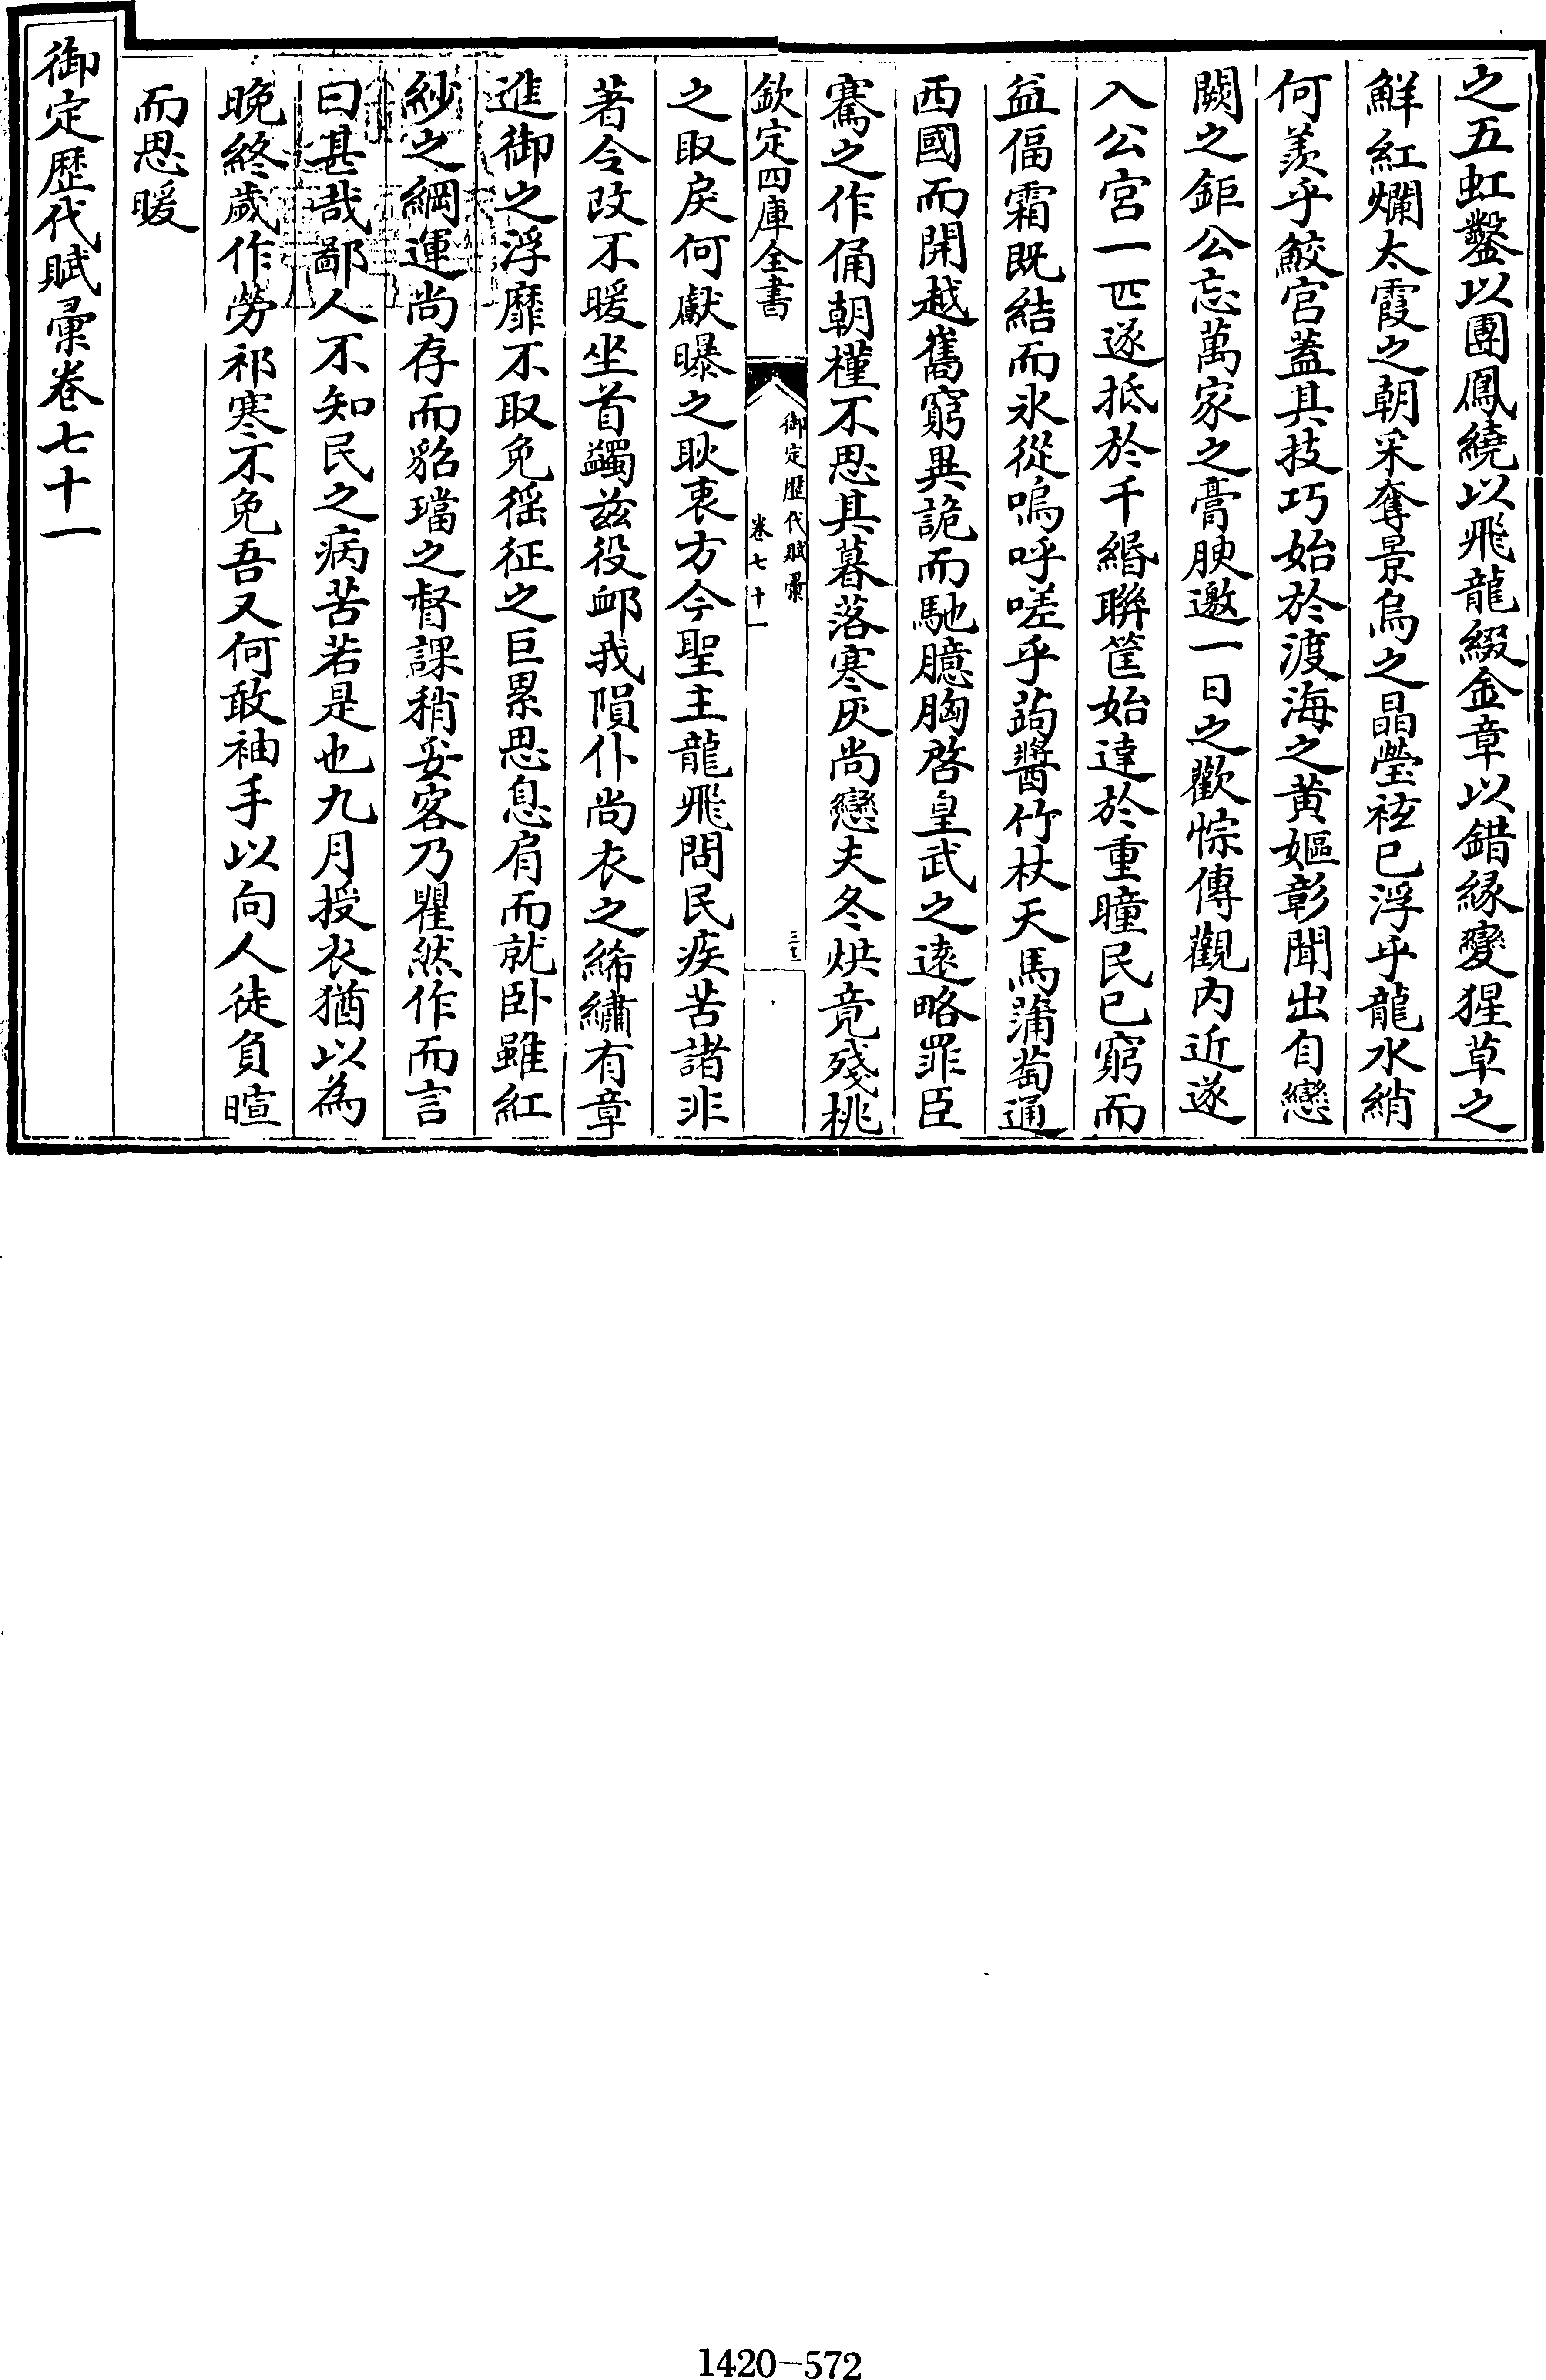 之五虹鑿以團鳳繞以飛龍綴金章以錯緣變猩草之
鮮紅爛太霞之朝采奪景烏之晶瑩袪已浮乎龍水綃
何羨乎鮫宮蓋其技巧始於渡海之黃嫗彰聞出自戀
闕之鉅公忘萬家之膏腴邀一日之歡悰傳觀內近遂
入公宮一匹遂抵於千緡聯筐始達於重瞳民已窮而
益偪霜既結而氷從嗚呼嗟乎蒟醬竹杖天馬蒲萄通
西國而開越嶲窮異詭而馳臆胸啓皇武之遠略罪臣
騫之作俑朝槿不思其暮落寒灰尚戀夫冬烘竟殘桃
欽定四庫全書
御定歷代賦彙
卷七十一
三十三
之取戾何獻曝之耿衷方今聖主龍飛問民疾苦諸非
著令改不暖坐首蠲兹役衈我隕仆尚衣之絺繡有章
進御之浮靡不取免徭征之巨累思息肩而就卧雖紅
紗之綱運尚存而貂璫之督課稍妥客乃瞿然作而言
曰甚哉鄙人不知民之病苦若是也九月授衣猶以為
晚終歲作勞祁寒不免吾又何敢袖手以向人徒負暄
而思暖
御定歷代賦彙卷七十一
1420-572